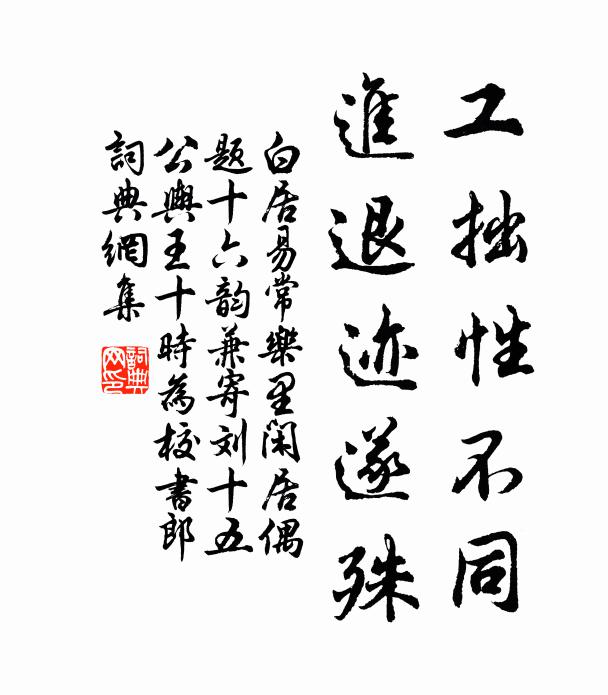 工拙性不同
進退迹遂殊
白居易常樂里閑居偶
題十六韵兼寄刘十五
公輿王十時為校書郎
詞典網集
詞典网印